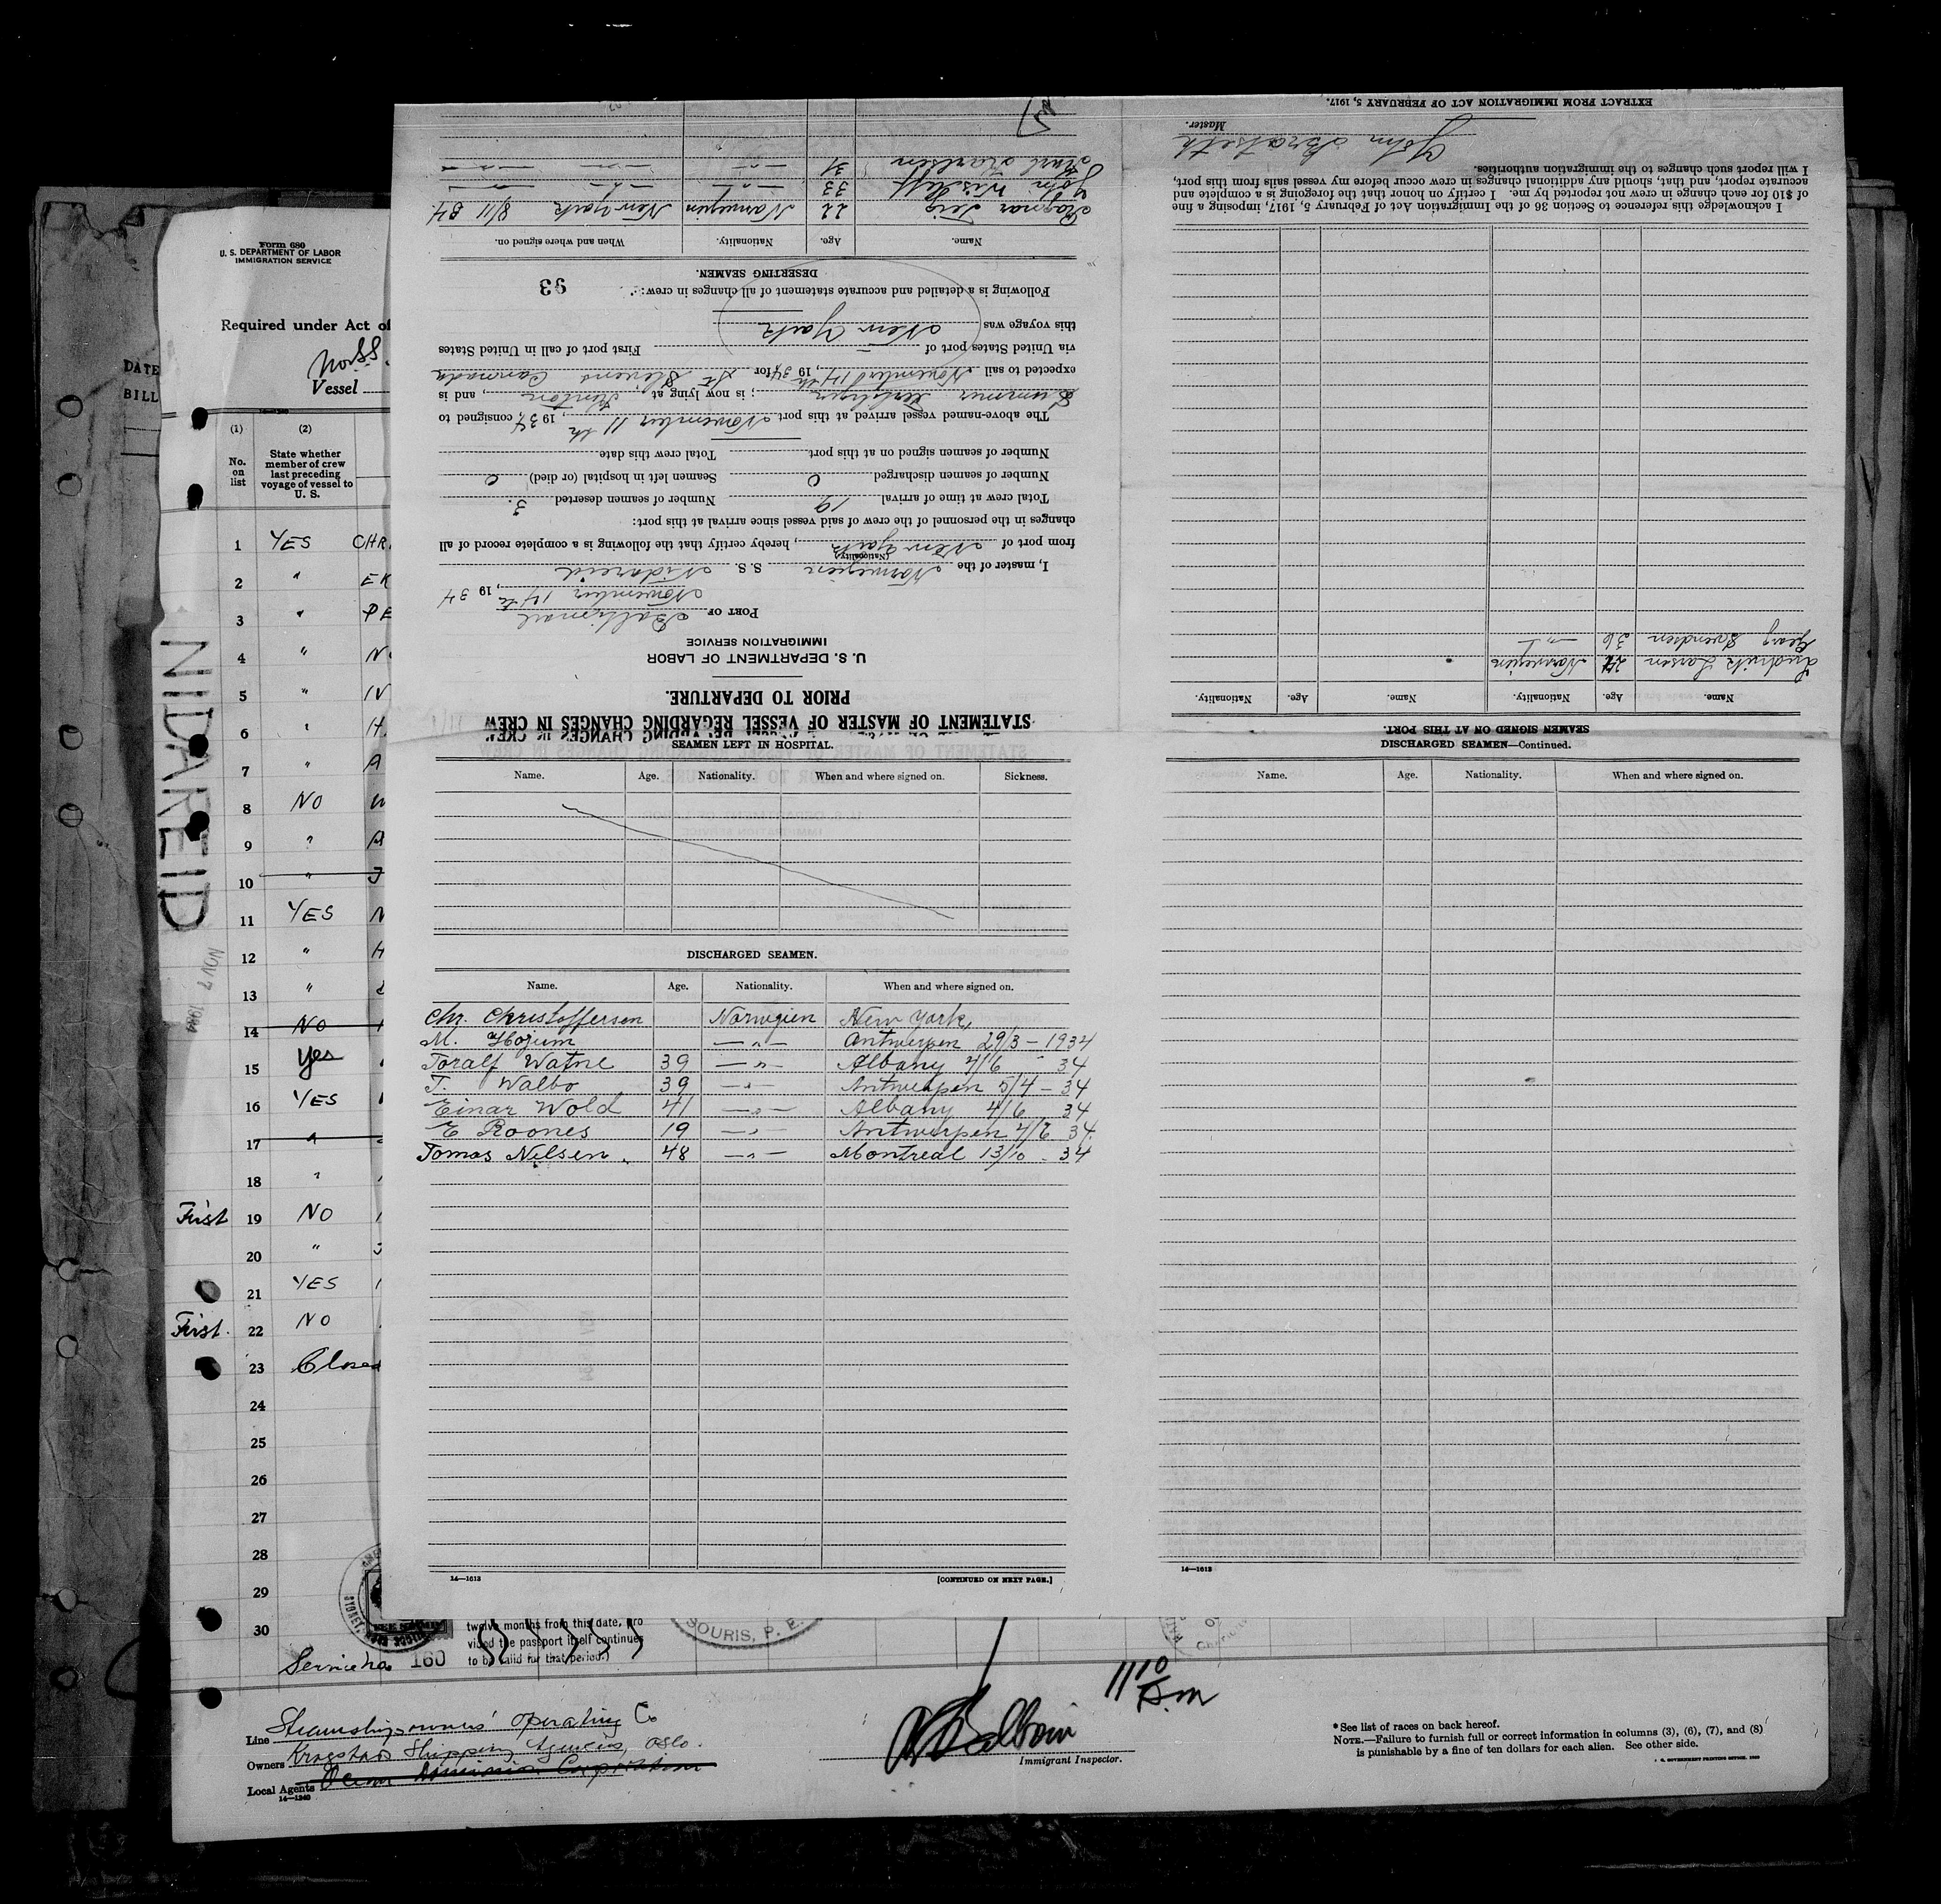 Form 680
U. S. DEPARTMENT OF LABOR
IMMIGRATION SERVICE
Required under Act of
Vessel
DATE
BILL
(1)
(2)
No.
on
list
State whether
member of crew
last preceding
voyage of vessel to
U. S.
1 YES CHR
2 " EK
3 " PE
4 " N
5 " IN
6 " H
7 " A
8 NO
9 " A
10 " J
11 YES N
12 " H
13 "
14 NO
15 yes
16 YES
17 "
18 "
First 19 NO
20 "
21 YES
First. 22 NO
23 Closed
24
25
26
27
28
29
30
NIDAREID
NOV 7 1934
160
twelve months from this date, pro
vided the passport itself continues
to be valid for that period.)
SOURIS, P. E.
Line Steamship owners' operating Co
Owners Krogstads Shipping Agencies, Oslo.
Local Agents Ocean Dominion Corporation
14—1240
11 10 Am
Immigrant Inspector.
*See list of races on back hereof.
NOTE.—Failure to furnish full or correct information in columns (3), (6), (7), and (8)
is punishable by a fine of ten dollars for each alien. See other side.
STATEMENT OF MASTER OF VESSEL REGARDING CHANGES IN CREW
PRIOR TO DEPARTURE.
U. S. DEPARTMENT OF LABOR
IMMIGRATION SERVICE
PORT OF Baltimore
November 14th, 19 34
I, master of the Norwegien S. S. Nidareid
(Nationality)
from port of New York, hereby certify that the following is a complete record of all
changes in the personnel of the crew of said vessel since arrival at this port:
Total crew at time of arrival 19 Number of seamen deserted 3.
Number of seamen discharged 0 Seamen left in hospital (or died) 0
Number of seamen signed on at this port Total crew this date
The above-named vessel arrived at this port November 11th, 1934, consigned to
; is now lying at , and is
expected to sail November 14th, 1934 for St Stevens Cannada
via United States port of — First port of call in United States
this voyage was New York
Following is a detailed and accurate statement of all changes in crew:
93
DESERTING SEAMEN.
Name. Age. Nationality. When and where signed on.
Ragnar Teig 22 Norwegien New York 8/11 34.
John 33 —"— —"— —"—
Karlsen 31 —"— —"— —"—
SEAMEN SIGNED ON AT THIS PORT
Name. Age. Nationality. Name. Age. Nationality.
Ludvik Larsen Norwegien
Georg Svendsen 36 —"—
I acknowledge this reference to Section 36 of the Immigration Act of February 5, 1917, imposing a fine
of $10 for each change in crew not reported by me. I certify on honor that the foregoing is a complete and
accurate report, and that, should any additional changes in crew occur before my vessel sails from this port,
I will report such changes to the immigration authorities.
John Bratseth
Master.
EXTRACT FROM IMMIGRATION ACT OF FEBRUARY 5, 1917.
SEAMEN LEFT IN HOSPITAL.
Name. Age. Nationality. When and where signed on. Sickness.
DISCHARGED SEAMEN.
Name. Age. Nationality. When and where signed on.
Chr. Christoffersen Norwegien New York,
M. Hojem —"— Antwerpen 29/3 – 1934
Toralf Watne 39 —"— Albany 4/6 - 34
T. Walbo 39 —"— Antwerpen 5/4 – 34
Einar Wold 41 —"— Albany 4/6 34
E Roones 19 —"— Antwerpen 4/8 34.
Tomas Nilsen. 48 —"— Montreal 13/10 - 34
14—1613
[CONTINUED ON NEXT PAGE.]
DISCHARGED SEAMEN—Continued.
Name. Age. Nationality. When and where signed on.
14—1613